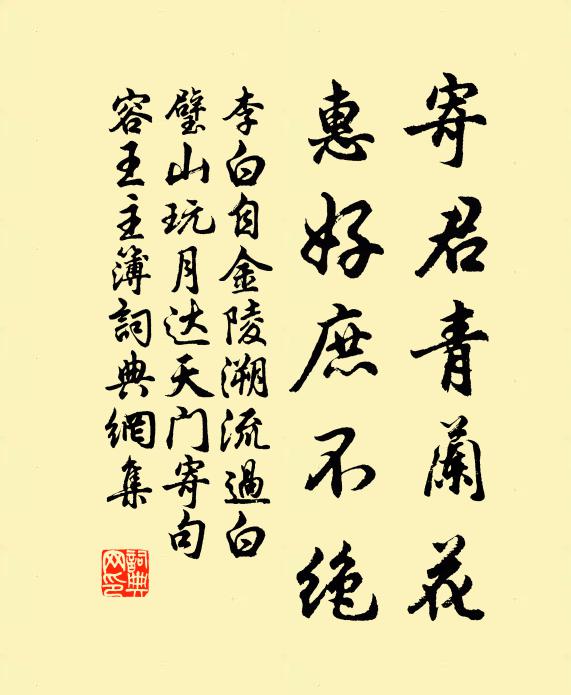 寄君青蘭花
惠好庶不绝
李白自金陵溯流過白
璧山玩月达天门寄句
容王主簿詞典網集
詞典網印